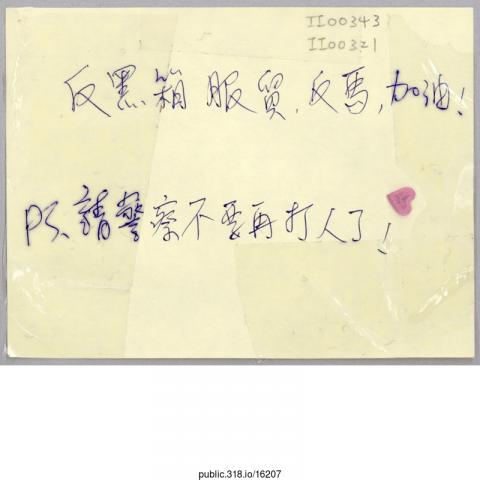 II00343
II00321
反黑箱服貿,反馬,加油!
PS、請警察不要再打人了!
public.318.io/16207